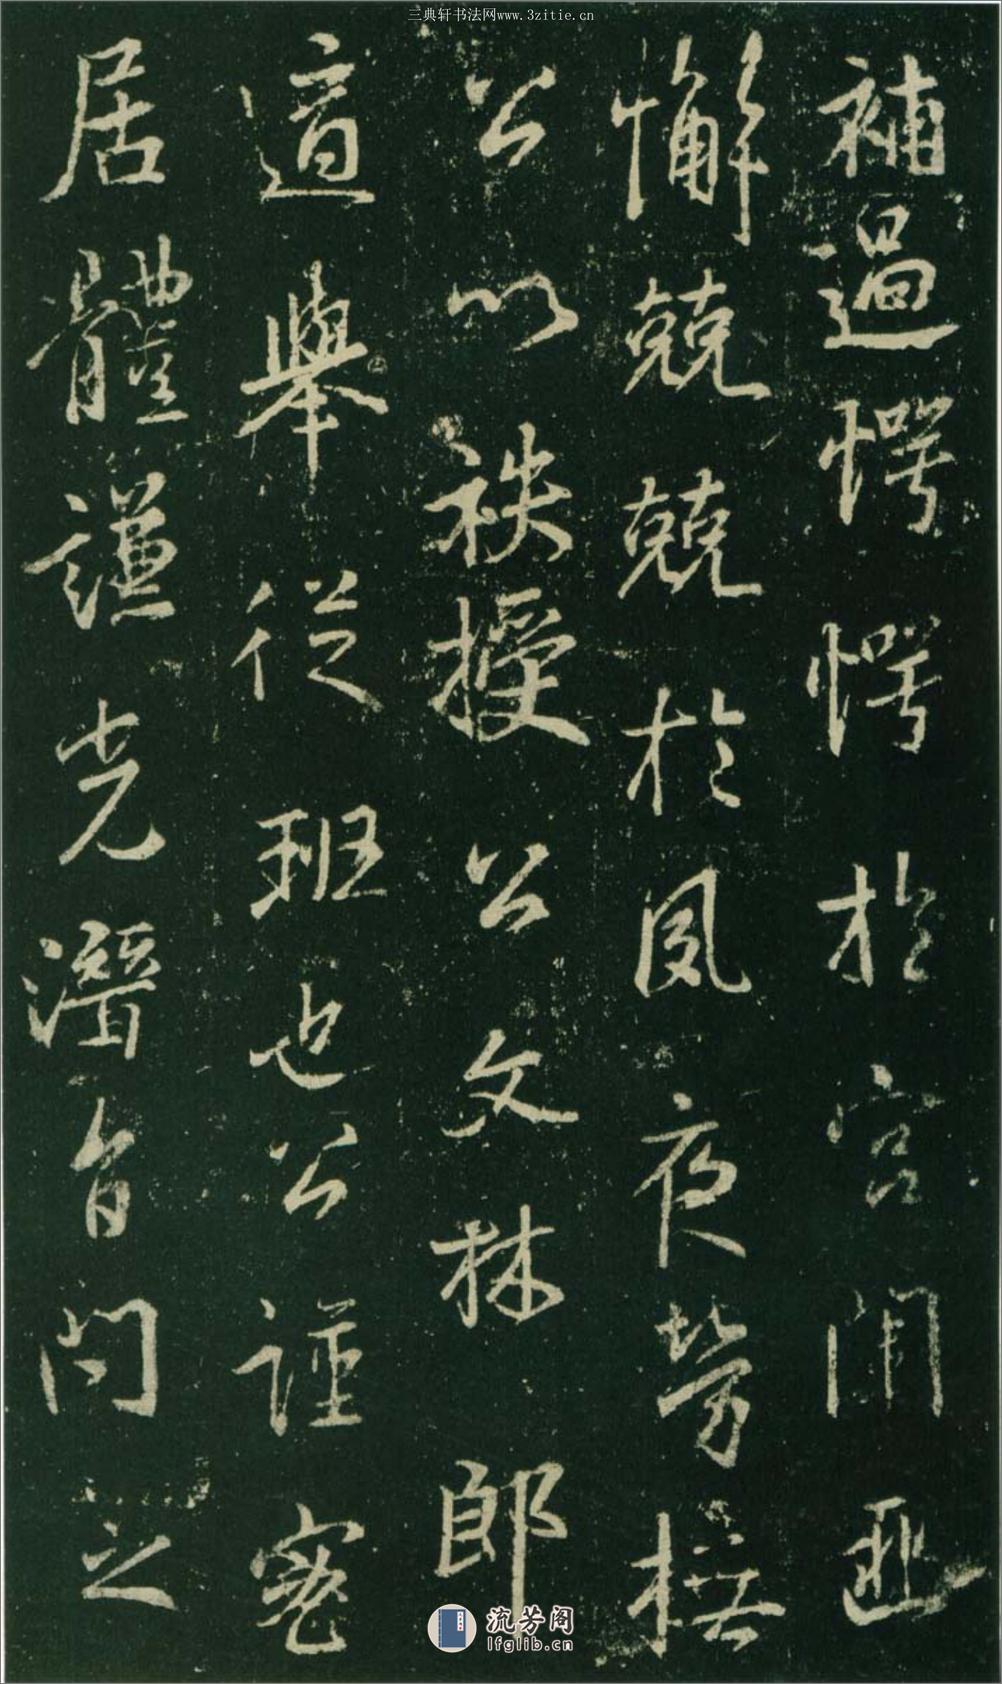 三典轩书法网www.3zitie.cn
補過愕愕於宮闈匪
懈兢兢於夙夜勞搭
公以袟授公文林郎
道舉從班也公謹密
居體謙克潛旨問之
流芳阁
lfglib.cn